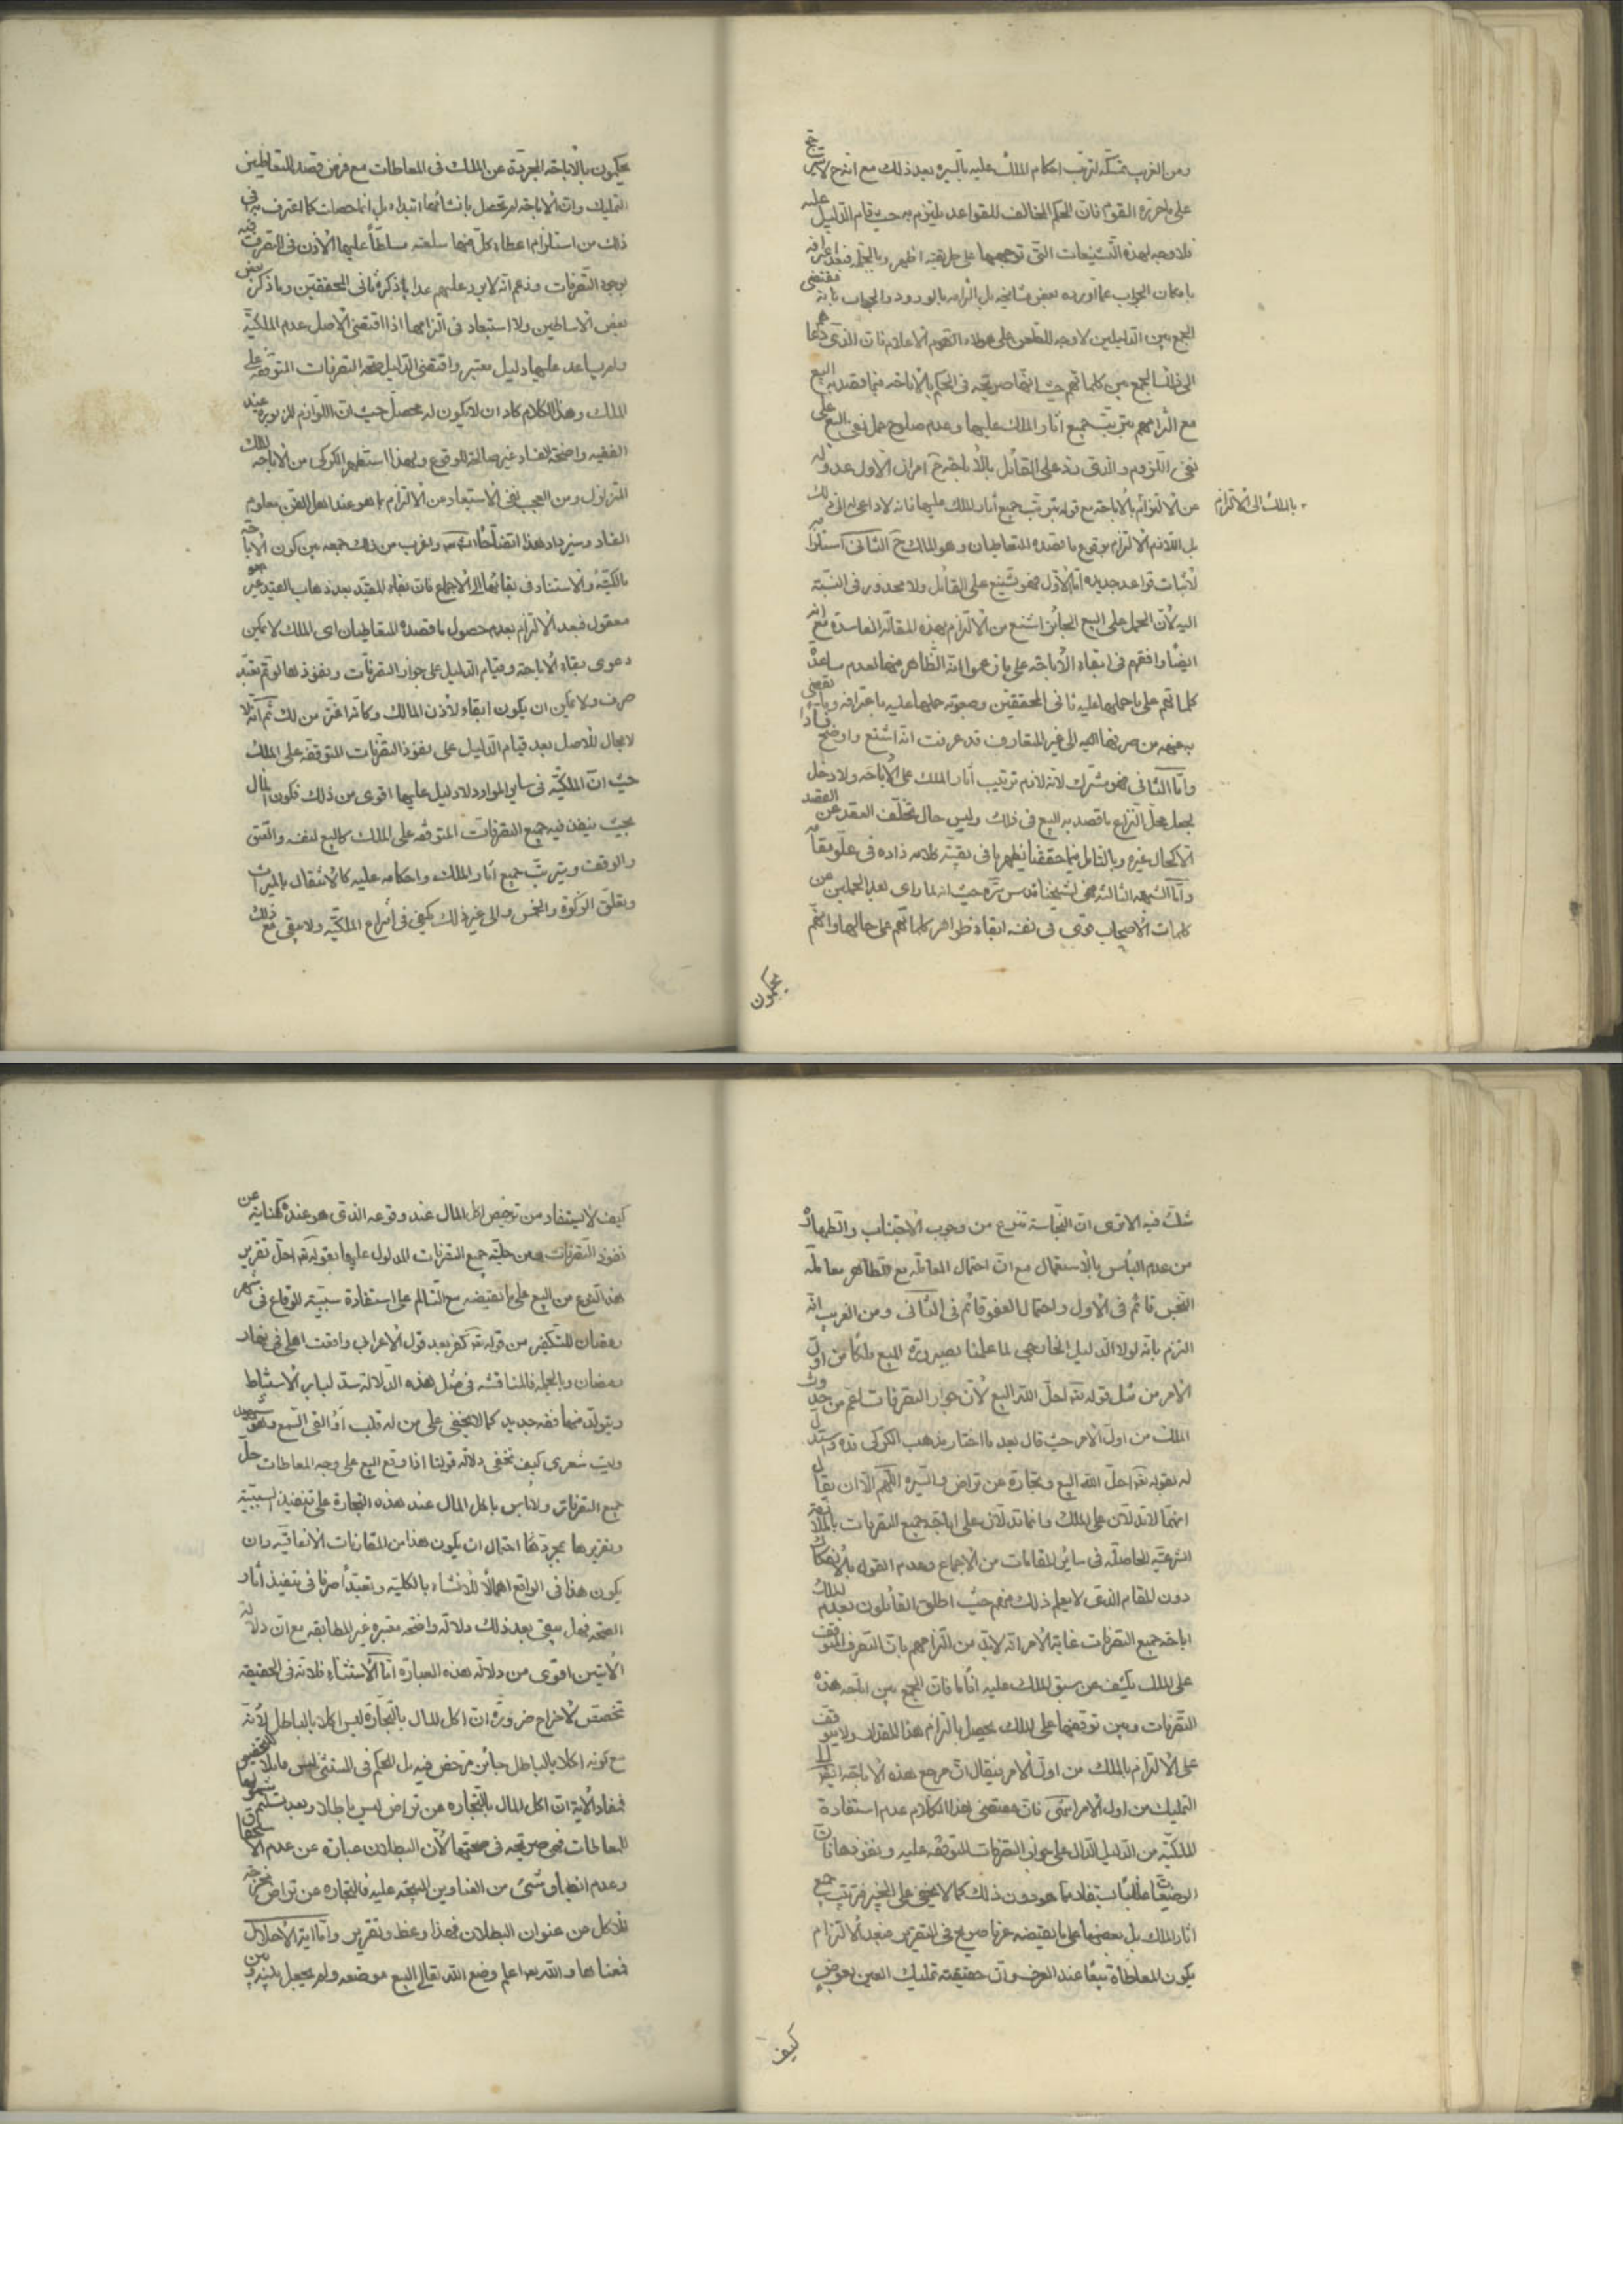 ومن الغريب تمسكه لترتب احكام الملك عليه بالسيرة بعد ذلك مع انه
على ما حرره القوم فان الحكم المخالف للقواعد يلتزم به حيث قام الدليل عليه
فلا وجه لهذه التشنيعات التى توجهها على طريقته اظهر وبالجملة فبعد اعترافه
بامكان الجواب عما اورده بعض مشايخه بل التزامه بالورود والجواب بانه مقتضى
الجمع بين الدليلين لا وجه للطعن على هؤلاء القوم الاعلام فان الذى دعاهم
الى ذلك الجمع بين كلماتهم حيث انها صريحة فى الحكم بالاباحة فيما قصد به البيع
مع التزامهم بترتيب جميع اثار الملك عليها وعدم صلوح حمل نفى البيع على
نفى اللزوم والذى يرد على القائل بالاباحة ح امران الاول عدوله
عن الالتزام بالاباحة مع قوله بترتب جميع اثار الملك عليها فانه لا داعى له الى ذلك
بالملك الى الالتزام
بل اللازم الالتزام بوقوع ما قصده المتعاطيان وهو الملك ح الثانى استلزامه
لاثبات قواعد جديدة اما الاول فهو تشنيع على القائل ولا محذور فى النسبة
اليه لان الحمل على البيع الجائز اشنع من الالتزام بهذه المقالة الفاسدة مع انه
ايضا وافقهم فى ابقاء الاباحة على ما زعموا انه الظاهر منها لعدم مساعدة
كلماتهم على ما حملها عليه ثانى المحققين وصعوبة حملها عليه باعترافه وما يقتضى
به منهم من صرفها اليه الى غير المتعارف قد عرفت انه اشنع واوضح فسادا
واما الثانى فهو مشترك لانه لازم ترتيب اثار الملك على الاباحة ولا دخل
لجعل محل النزاع ما قصد به البيع فى ذلك وليس حال تخلف العقد عن العقد
الا كحال غيره وبالتامل فيما حققنا يظهر ما فى بقية كلامه زاده فى علو مقامه
واما الشبهة الثالثة فهى لشيخنا قدس سره حيث انه لما راى بعد الحملين عن
كلمات الاصحاب قوى فى نفسه ابقاء ظواهر كلماتهم على حالها وانهم
يحكمون
يحكمون بالاباحة المجردة عن الملك فى المعاطات مع فرض قصد المتعاطيين
التمليك وان الاباحة لم تحصل بانشائهما ابتداء بل انما حصلت كما اعترف به فى
ذلك من استلزام اعطاء كل منهما سلعته مسلطا عليها الاذن فى التصرف فيه
بوجوه التصرفات وزعم انه لا يرد عليهم عدا ما ذكره ثانى المحققين وما ذكره بعض
بعض الاساطين ولا استبعاد فى التزامها اذا اقتضى الاصل عدم الملكية
ولم يساعد عليها دليل معتبر واقتضى الدليل صحة التصرفات المتوقفة على
الملك وهذا الكلام كاد ان لا يكون له محصل حيث ان اللوازم المزبورة عند
الفقيه واضحة الفساد غير صالحة للوقوع ولهذا استظهر الكركى من الاباحة الملك
المتزلزل ومن العجب نفى الاستبعاد من الالتزام بما هو عند اهل الفن معلوم
الفساد وسيزداد هذا اتضاحا انشاء الله واغرب من ذلك جمعه بين كون الاباحة
مالكية والاستناد فى بقائها الى الاجماع فان بقاء المقيد بعد ذهاب القيد غير
معقول فبعد الالتزام بعدم حصول ما قصده المتعاطيان اى الملك لا يمكن
دعوى بقاء الاباحة وقيام الدليل على جواز التصرفات ونفوذها لو تم تعبد
صرف ولا يمكن ان يكون ابقاء لاذن المالك وكانه اغتر من ذلك ثم انه
لا مجال للاصل بعد قيام الدليل على نفوذ التصرفات المتوقفة على الملك
حيث ان الملكية فى ساير الموارد لا دليل عليها اقوى من ذلك فكون المال
بحيث ينفذ فيه جميع التصرفات المتوقفة على الملك كالبيع لنفسه والعتق
والوقف ويترتب جميع اثار الملك واحكامه عليه كالانتقال بالميراث
وتعلق الزكوة والخمس والى غير ذلك يكفى فى انتزاع الملكية ولا يبقى مع ذلك
شك فيه الا ترى ان النجاسة تنتزع من وجوب الاجتناب والطهارة
من عدم الباس بالاستعمال مع ان احتمال المعاملة مع الطاهر معاملة
النجس قائم فى الاول واحتمال العفو قائم فى الثانى ومن الغريب انه
التزم بانه لولا الدليل الخارجى لما علمنا بصيرورة المبيع ملكا من اول
الامر من مثل قوله تعالى احل الله البيع لان جواز التصرفات اعم من حدوث
الملك من اول الامر حيث قال بعد ما اختار مذهب الكركى قده واستدل
له بقوله تعالى احل الله البيع وتجارة عن تراض والسيرة اللهم الا ان يقال
انهما لا تدلان على الملك وانما تدلان على اباحة جميع التصرفات بالملازمة
الشرعية الحاصلة فى سائر المقامات من الاجماع وعدم القول بالانفكاك
دون المقام الذى لا يعلم ذلك منهم حيث اطلق القائلون بعدم الملك
اباحة جميع التصرفات غاية الامر انه لا بد من التزامهم بان التصرف المتوقف
على الملك يكشف عن سبق الملك عليه انا ما فان الجمع بين اباحة هذه
التصرفات وبين توقفها على الملك يحصل بالتزام هذا المقدار ولا يتوقف
على الالتزام بالملك من اول الامر فيقال ان مرجع هذه الاباحة ايضا الى
التمليك من اول الامر انتهى فان مقتضى هذا الكلام عدم استفادة
الملكية من الدليل الدال على جواز التصرفات المتوقفة عليه ونفوذها فان
الوضع غالبا يستفاد مما هو دون ذلك كما لا يخفى على الخبير فترتيب جميع
اثار الملك بل بعضها على ما يقتضيه عرفا صريح فى التقرير فبعد الالتزام
بكون المعاطاة بيعا عند العرف وان حقيقته تمليك العين بعوض
كيف
كيف لا يستفاد من ترخيص اكل المال عند وقوعه الذى هو عنده كناية عن
نفوذ التصرفات ومن حلية جميع التصرفات المدلول عليها بقوله تعالى احل تقرير
هذا النوع من البيع على ما يقتضيه مع التسالم على استفادة سببية الوقاع فى شهر
رمضان للتكفير من قوله كفر بعد قول الاعرابى واقعت اهلى فى نهار
رمضان وبالجملة فالمناقشة فى مثل هذه الدلالة سد لباب الاستنباط
ويتولد منها فقه جديد كما لا يخفى على من له قلب او القى السمع وهو شهيد
وليت شعرى كيف تخفى دلالة قولنا اذا وقع البيع على وجه المعاطات حل
جميع التصرفات ولا باس باكل المال عند هذه التجارة على تنفيذ السببية
وتقريرها بمجرد احتمال ان يكون هذا من المقارنات الاتفاقية وان
يكون هذا فى الواقع اهمالا للانشاء بالكلية وتعبدا صرفا فى تنفيذ اثار
الصحة فهل يبقى بعد ذلك دلالة واضحة معتبرة غير المطابقة مع ان دلالة
الايتين اقوى من دلالة هذه العبارة اما الاستثناء فلانه فى الحقيقة
تخصص لاخراج ضرورة ان اكل المال بالتجارة ليس اكلا بالباطل لا انه
مع كونه اكلا بالباطل جائز مرخص فيه بل الحكم فى المستثنى ليس قابلا للتخصيص
فمفاد الاية ان اكل المال بالتجارة عن تراض ليس باطلا وبعد تسليم شمولها
للمعاطات فهى صريحة فى صحتها لان البطلان عبارة عن عدم الاستحقاق
وعدم انطباق شىء من العناوين المبيحة عليه فالتجارة عن تراض مخرجة
للاكل من عنوان البطلان فهذا وعظ وتقرير واما اية الاحلال
فمعناها والله يعلم وضع الله تعالى البيع موضعه ولم يجعل بينه وبين